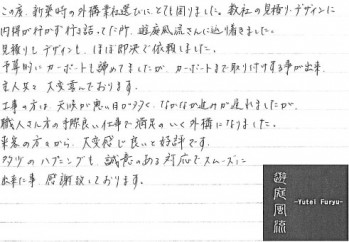 この度、新築時の外構業社選びに、とても困りました。数社の見積り・デザインに
内得が行かず行き詰ってた所、遊庭風流さんに辿り着きました。
見積りもデザインも、ほぼ即決で依頼しました。
予算的にカーポートも諦めてましたが、カーポートまで取り付けする事が出来、
主人共々大変喜んでおります。
工事の方は、天候が悪い日が多く、なかなか進みが遅れましたが、
職人さん方の手際良い仕事で満足のいく外構になりました。
来客の方々から、大変感じ良いと好評です。
多少のハプニングも、誠意のある対応でスムーズに
出来た事、感謝致しております。
遊庭風流
-Yutei Furyu-